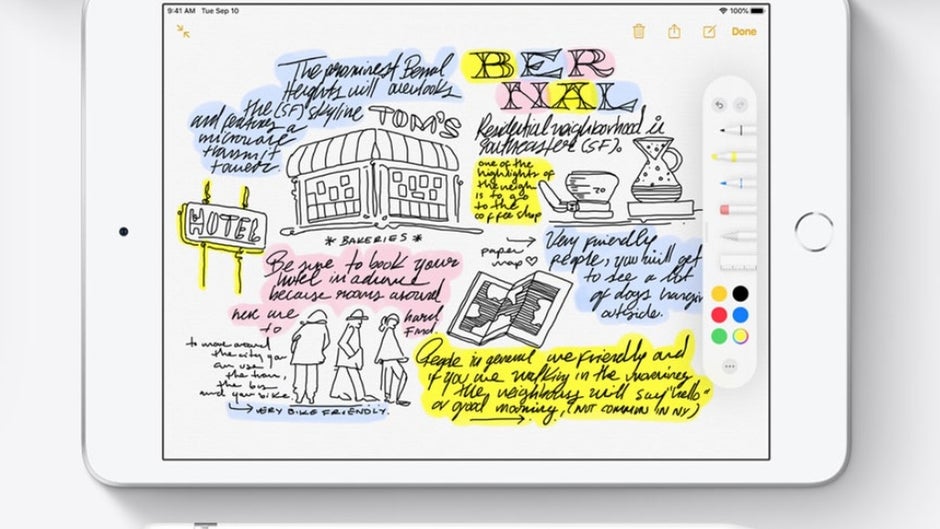 9:41 AM Tue Sep 10
100%
Done
The prominest Bernal
Heights will overlooks
the (SF) skyline
and features a
microwave
transmit
tower.
BER
NAL
TOM'S
Residential neighborhood in
southeaster (SF).
one of the
highlights of
the neigh
is to go
to the
coffee shop
20
HOTEL
* BAKERIES *
paper
map
Very friendly
people, you will get
to see a lot
of dogs hangin
outside.
Be sure to book your
hotel in advance
because rooms around
here are hard
to find.
to move around
the city you
can use
the train,
the bus
and your bike.
VERY BIKE FRIENDLY.
People in general are friendly and
if you are walking in the mornings
the neighbours will say "hello"
or good morning, (NOT COMMON IN NY)